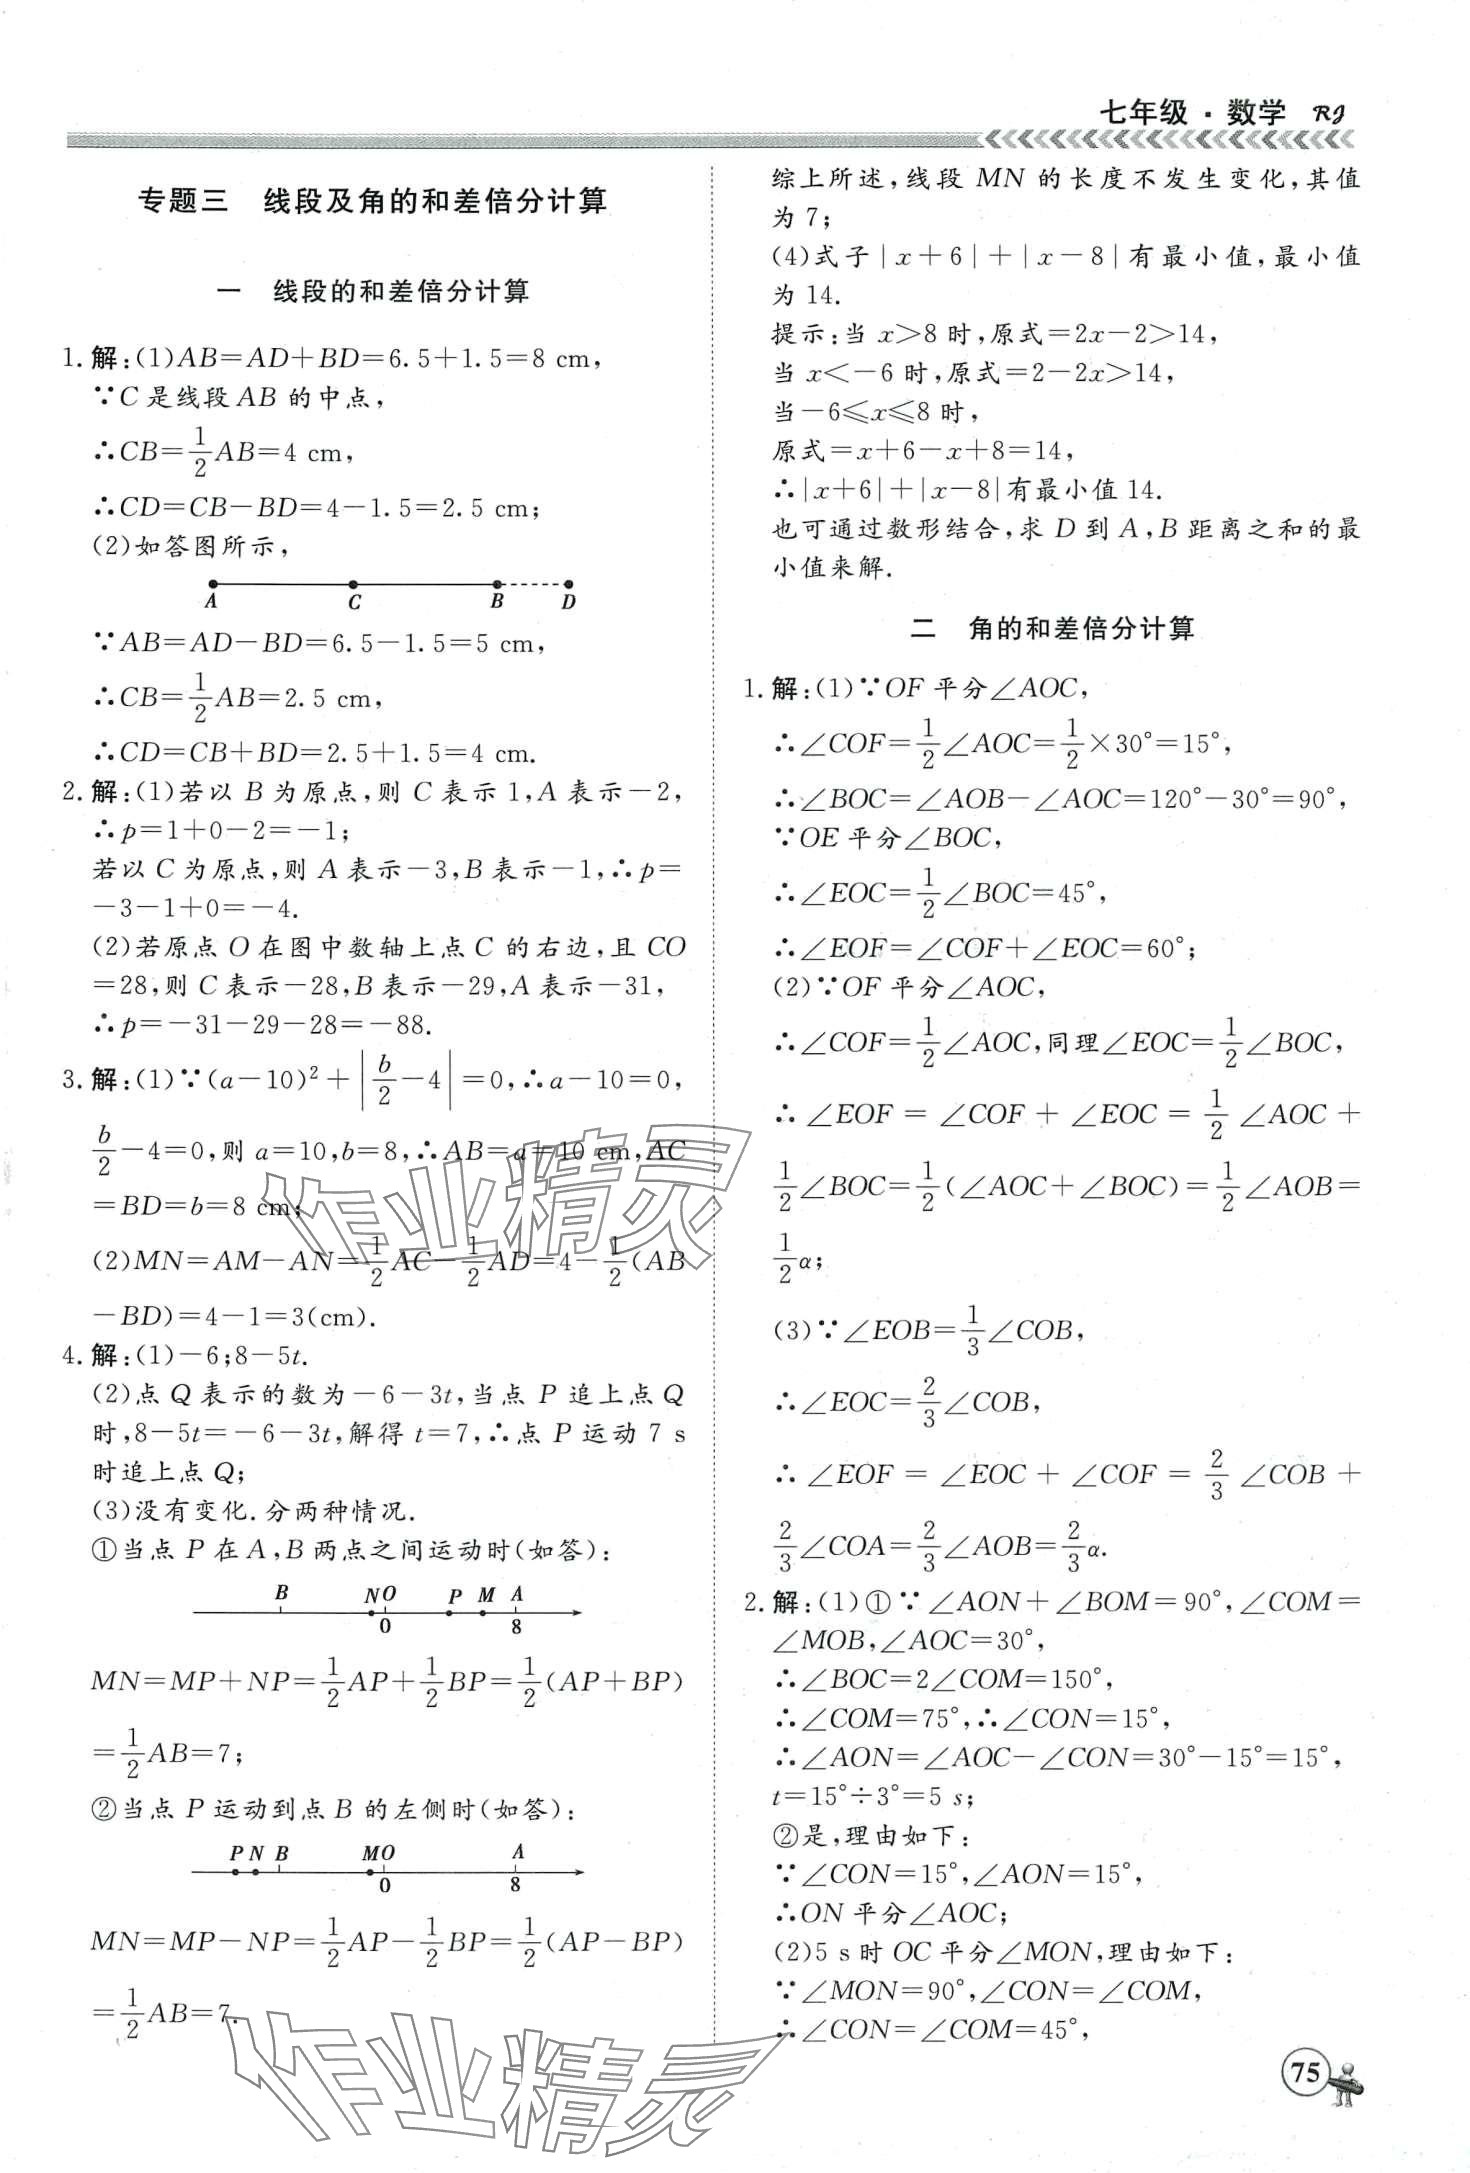 七年级·数学 RJ
专题三 线段及角的和差倍分计算
一 线段的和差倍分计算
1.解:(1)AB=AD+BD=6.5+1.5=8 cm,
∵C是线段AB的中点,
∴CB=1/2AB=4 cm,
∴CD=CB-BD=4-1.5=2.5 cm;
(2)如答图所示,
A C B D
∵AB=AD-BD=6.5-1.5=5 cm,
∴CB=1/2AB=2.5 cm,
∴CD=CB+BD=2.5+1.5=4 cm.
2.解:(1)若以B为原点,则C表示1,A表示-2,
∴p=1+0-2=-1;
若以C为原点,则A表示-3,B表示-1,∴p=
-3-1+0=-4.
(2)若原点O在图中数轴上点C的右边,且CO
=28,则C表示-28,B表示-29,A表示-31,
∴p=-31-29-28=-88.
3.解:(1)∵(a-10)²+|b/2-4|=0,∴a-10=0,
b/2-4=0,则a=10,b=8,∴AB=a=10 cm,AC
=BD=b=8 cm;
(2)MN=AM-AN=1/2AC-1/2AD=4-1/2(AB
-BD)=4-1=3(cm).
4.解:(1)-6;8-5t.
(2)点Q表示的数为-6-3t,当点P追上点Q
时,8-5t=-6-3t,解得t=7,∴点P运动7 s
时追上点Q;
(3)没有变化.分两种情况.
①当点P在A,B两点之间运动时(如答):
B NO P M A
0 8
MN=MP+NP=1/2AP+1/2BP=1/2(AP+BP)
=1/2AB=7;
②当点P运动到点B的左侧时(如答):
P N B MO A
0 8
MN=MP-NP=1/2AP-1/2BP=1/2(AP-BP)
=1/2AB=7.
综上所述,线段MN的长度不发生变化,其值
为7;
(4)式子|x+6|+|x-8|有最小值,最小值
为14.
提示:当x>8时,原式=2x-2>14,
当x<-6时,原式=2-2x>14,
当-6≤x≤8时,
原式=x+6-x+8=14,
∴|x+6|+|x-8|有最小值14.
也可通过数形结合,求D到A,B距离之和的最
小值来解.
二 角的和差倍分计算
1.解:(1)∵OF平分∠AOC,
∴∠COF=1/2∠AOC=1/2×30°=15°,
∴∠BOC=∠AOB-∠AOC=120°-30°=90°,
∵OE平分∠BOC,
∴∠EOC=1/2∠BOC=45°,
∴∠EOF=∠COF+∠EOC=60°;
(2)∵OF平分∠AOC,
∴∠COF=1/2∠AOC,同理∠EOC=1/2∠BOC,
∴∠EOF=∠COF+∠EOC=1/2∠AOC+
1/2∠BOC=1/2(∠AOC+∠BOC)=1/2∠AOB=
1/2α;
(3)∵∠EOB=1/3∠COB,
∴∠EOC=2/3∠COB,
∴∠EOF=∠EOC+∠COF=2/3∠COB+
2/3∠COA=2/3∠AOB=2/3α.
2.解:(1)①∵∠AON+∠BOM=90°,∠COM=
∠MOB,∠AOC=30°,
∴∠BOC=2∠COM=150°,
∴∠COM=75°,∴∠CON=15°,
∴∠AON=∠AOC-∠CON=30°-15°=15°,
t=15°÷3°=5 s;
②是,理由如下:
∵∠CON=15°,∠AON=15°,
∴ON平分∠AOC;
(2)5 s时OC平分∠MON,理由如下:
∵∠MON=90°,∠CON=∠COM,
∴∠CON=∠COM=45°,
75
作业精灵
作业精灵